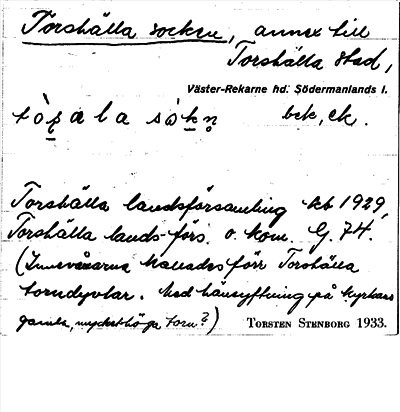 Torshälla socken, annex till
Torshälla stad,
Väster-Rekarne hd. Södermanlands l.
bek, ck.
Torshälla landsförsamling kb 1929,
Torshälla lands-förs. o. kom. G. 74.
(Innevånarna kallades förr Torshälla
torndyvlar. Med hänsyftning på kyrkans
gamla, mycket höga torn?) TORSTEN STENBORG 1933.